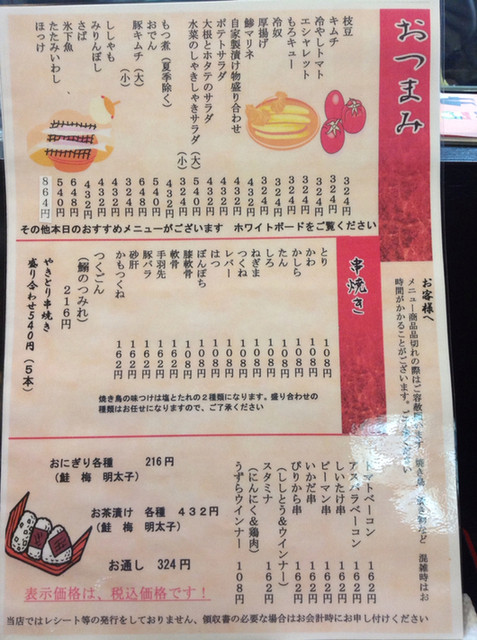 おつまみ
枝豆 324円
キムチ 324円
冷やしトマト 324円
エシャレット 324円
もろキュー 324円
冷奴 324円
厚揚げ 324円
鯵マリネ
自家製漬け物盛り合わせ
ポテトサラダ
大根とホタテのサラダ
水菜のしゃきしゃきサラダ（大）
（小）
もつ煮（夏季除く）
おでん
豚キムチ（大）
（小）
ししゃも
みりんぼし 432円
さば 432円
氷下魚 648円
たたみいわし 540円
ほっけ 864円
その他本日のおすすめメニューがございます　ホワイトボードをご覧ください
お客様へ
メニュー商品品切れの際はご容赦
時間がかかることがございます。
混雑時はお
串焼き
とり 108円
かわ 108円
かしら 108円
たん 108円
しろ 108円
ねぎま 108円
つくね 108円
レバー 108円
はつ 108円
ぼんぼち 108円
膝軟骨 108円
軟骨 108円
手羽先 162円
豚バラ 162円
砂肝 162円
かもつくね 162円
つくごん
（鰯のつみれ） 216円
やきとり串焼き
盛り合わせ540円（5本）
焼き鳥の味つけは塩とたれの2種類になります。盛り合わせの
種類はお任せになりますので、ご了承ください
トマトベーコン 162円
アスパラベーコン 162円
しいたけ串 162円
ピーマン串 162円
いかだ串 162円
ぴりから串 162円
（ししとう＆ウインナー）
スタミナ 162円
（にんにく＆鶏肉）
うずらウインナー 108円
おにぎり各種　216円
（鮭　梅　明太子）
お茶漬け　各種　432円
（鮭　梅　明太子）
お通し　324円
表示価格は、税込価格です！
当店ではレシート等の発行をしておりません、領収書の必要な場合はお会計時にお申し付けください